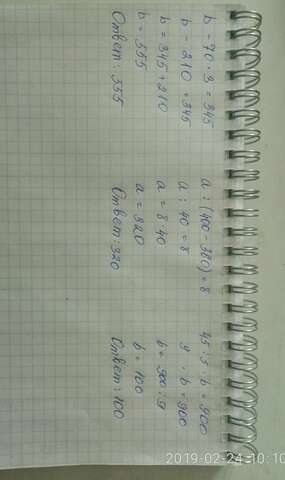 b - 70 · 3 = 345
b - 210 = 345
b = 345 + 210
b = 555
Ответ: 555
a : (400 - 360) = 8
a : 40 = 8
a = 8 · 40
a = 320
Ответ: 320
45 : 5 · b = 900
9 · b = 900
b = 900 : 9
b = 100
Ответ: 100
2019-02-24 10:10